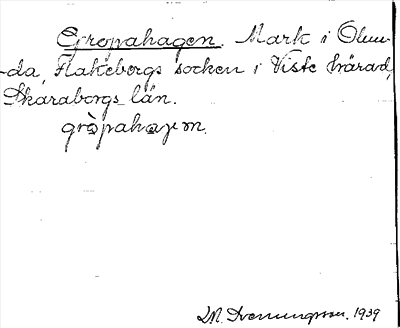 Gropahagen. Mark i Olun-
-da, Flakebergs socken i Viste härad,
Skaraborgs län.
gròpahagen.
1939